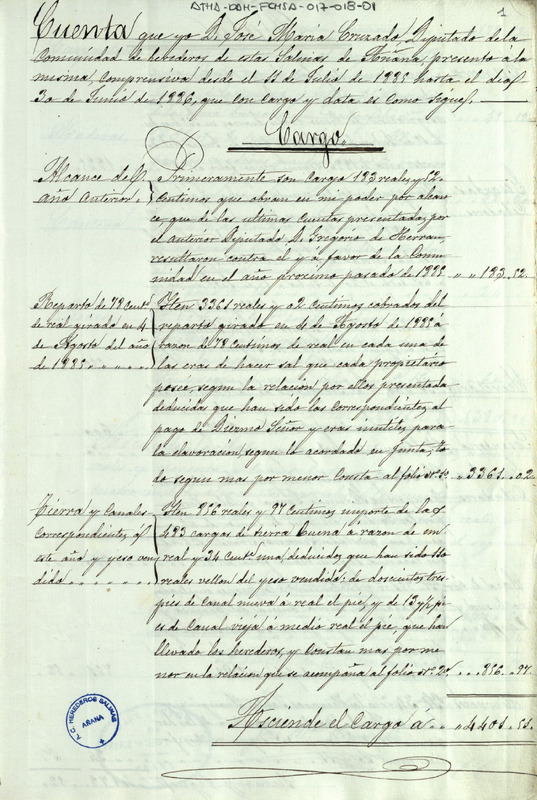 ATHA-DAH-FCHSA-017-018-01
1
Cuenta que yo D. José Maria Cruzado, Diputado de la
Comunidad de herederos de estas Salinas de Añana, presento á la
misma, comprensiva desde el 11 de Julio de 1885 hasta el dia
30 de Junio de 1886, que con cargo y data es como sigue.
Cargo.
Alcance del
año anterior.
Primeramente son cargo 183 reales y 52
centimos que obran en mi poder por alcan-
ce, que de las ultimas cuentas presentadas por
el anterior Diputado D. Gregorio de Herran,
resultaron contra el y á favor de la Comu-
nidad en el año procsimo pasado de 1885 " " 183. 52.
Reparto de 78 cents
de real girado en 4
de Agosto del año
de 1885. " " " "
Iten 3361 reales y 02 centimos cobrados del
reparto girado en 4 de Agosto de 1885 á
razon de 78 centimos de real en cada una de
las eras de hacer sal que cada propietario
posee, segun la relación por ellos presentada
deducidas que han sido las correspondientes al
pago de Diezmo Señor y eras inutiles para
la elavoración, segun lo acordado en junta, to-
do segun mas por menor consta al folio no. 1o. " 3361. 02
Tierra y canales
correspondientes á
este año y yeso ven
dido. . . . . . . . .
Iten 856 reales y 97 centimos importe de las
493 cargas de tierra buena á razon de un
real y 34 cents. una, deducidos que han sido 110
reales vellon del yeso vendido: de doscientos tres
pies de canal nueva á real el pie, y de 13 y 1/2 pi
es de canal vieja á medio real el pie, que han
llevado los herederos, y constan mas por me-
nor en la relación que se acompaña al folio no. 2o. . . 856. 97.
Asciende el Cargo á. " " 4401. 51.
I. C. HEREDEROS SALINAS
AÑANA